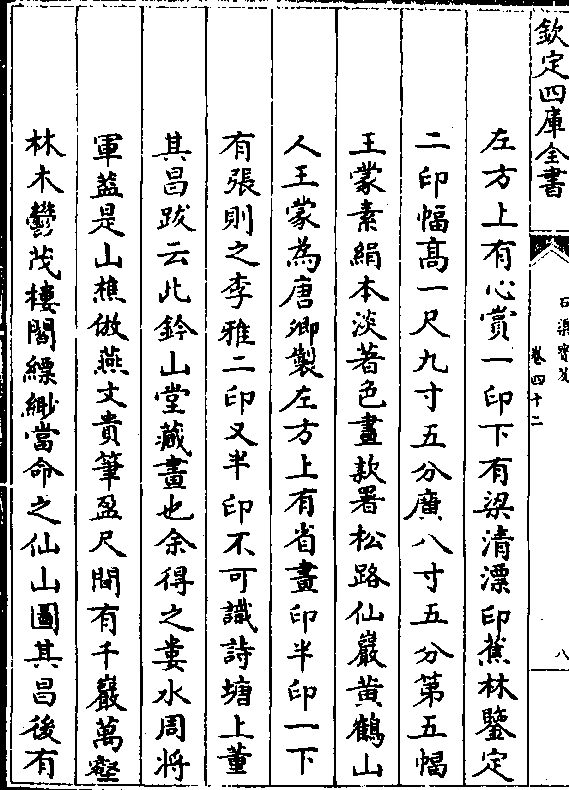 欽定四庫全書
石渠寳笈
卷四十二
八
左方上有心賞一印下有梁清漂印蕉林鑒定
二印幅髙一尺九寸五分廣八寸五分第五幅
王蒙素絹本淡著色畫款署松路仙巖黄鶴山
人王蒙為唐卿製左方上有省畫印半印一下
有張則之李雅二印又半印不可識詩塘上董
其昌跋云此鈐山堂藏畫也余得之婁水周將
軍葢是山樵倣燕文貴筆盈尺間有千巖萬壑
林木鬱茂樓閣縹緲當命之仙山圖其昌後有